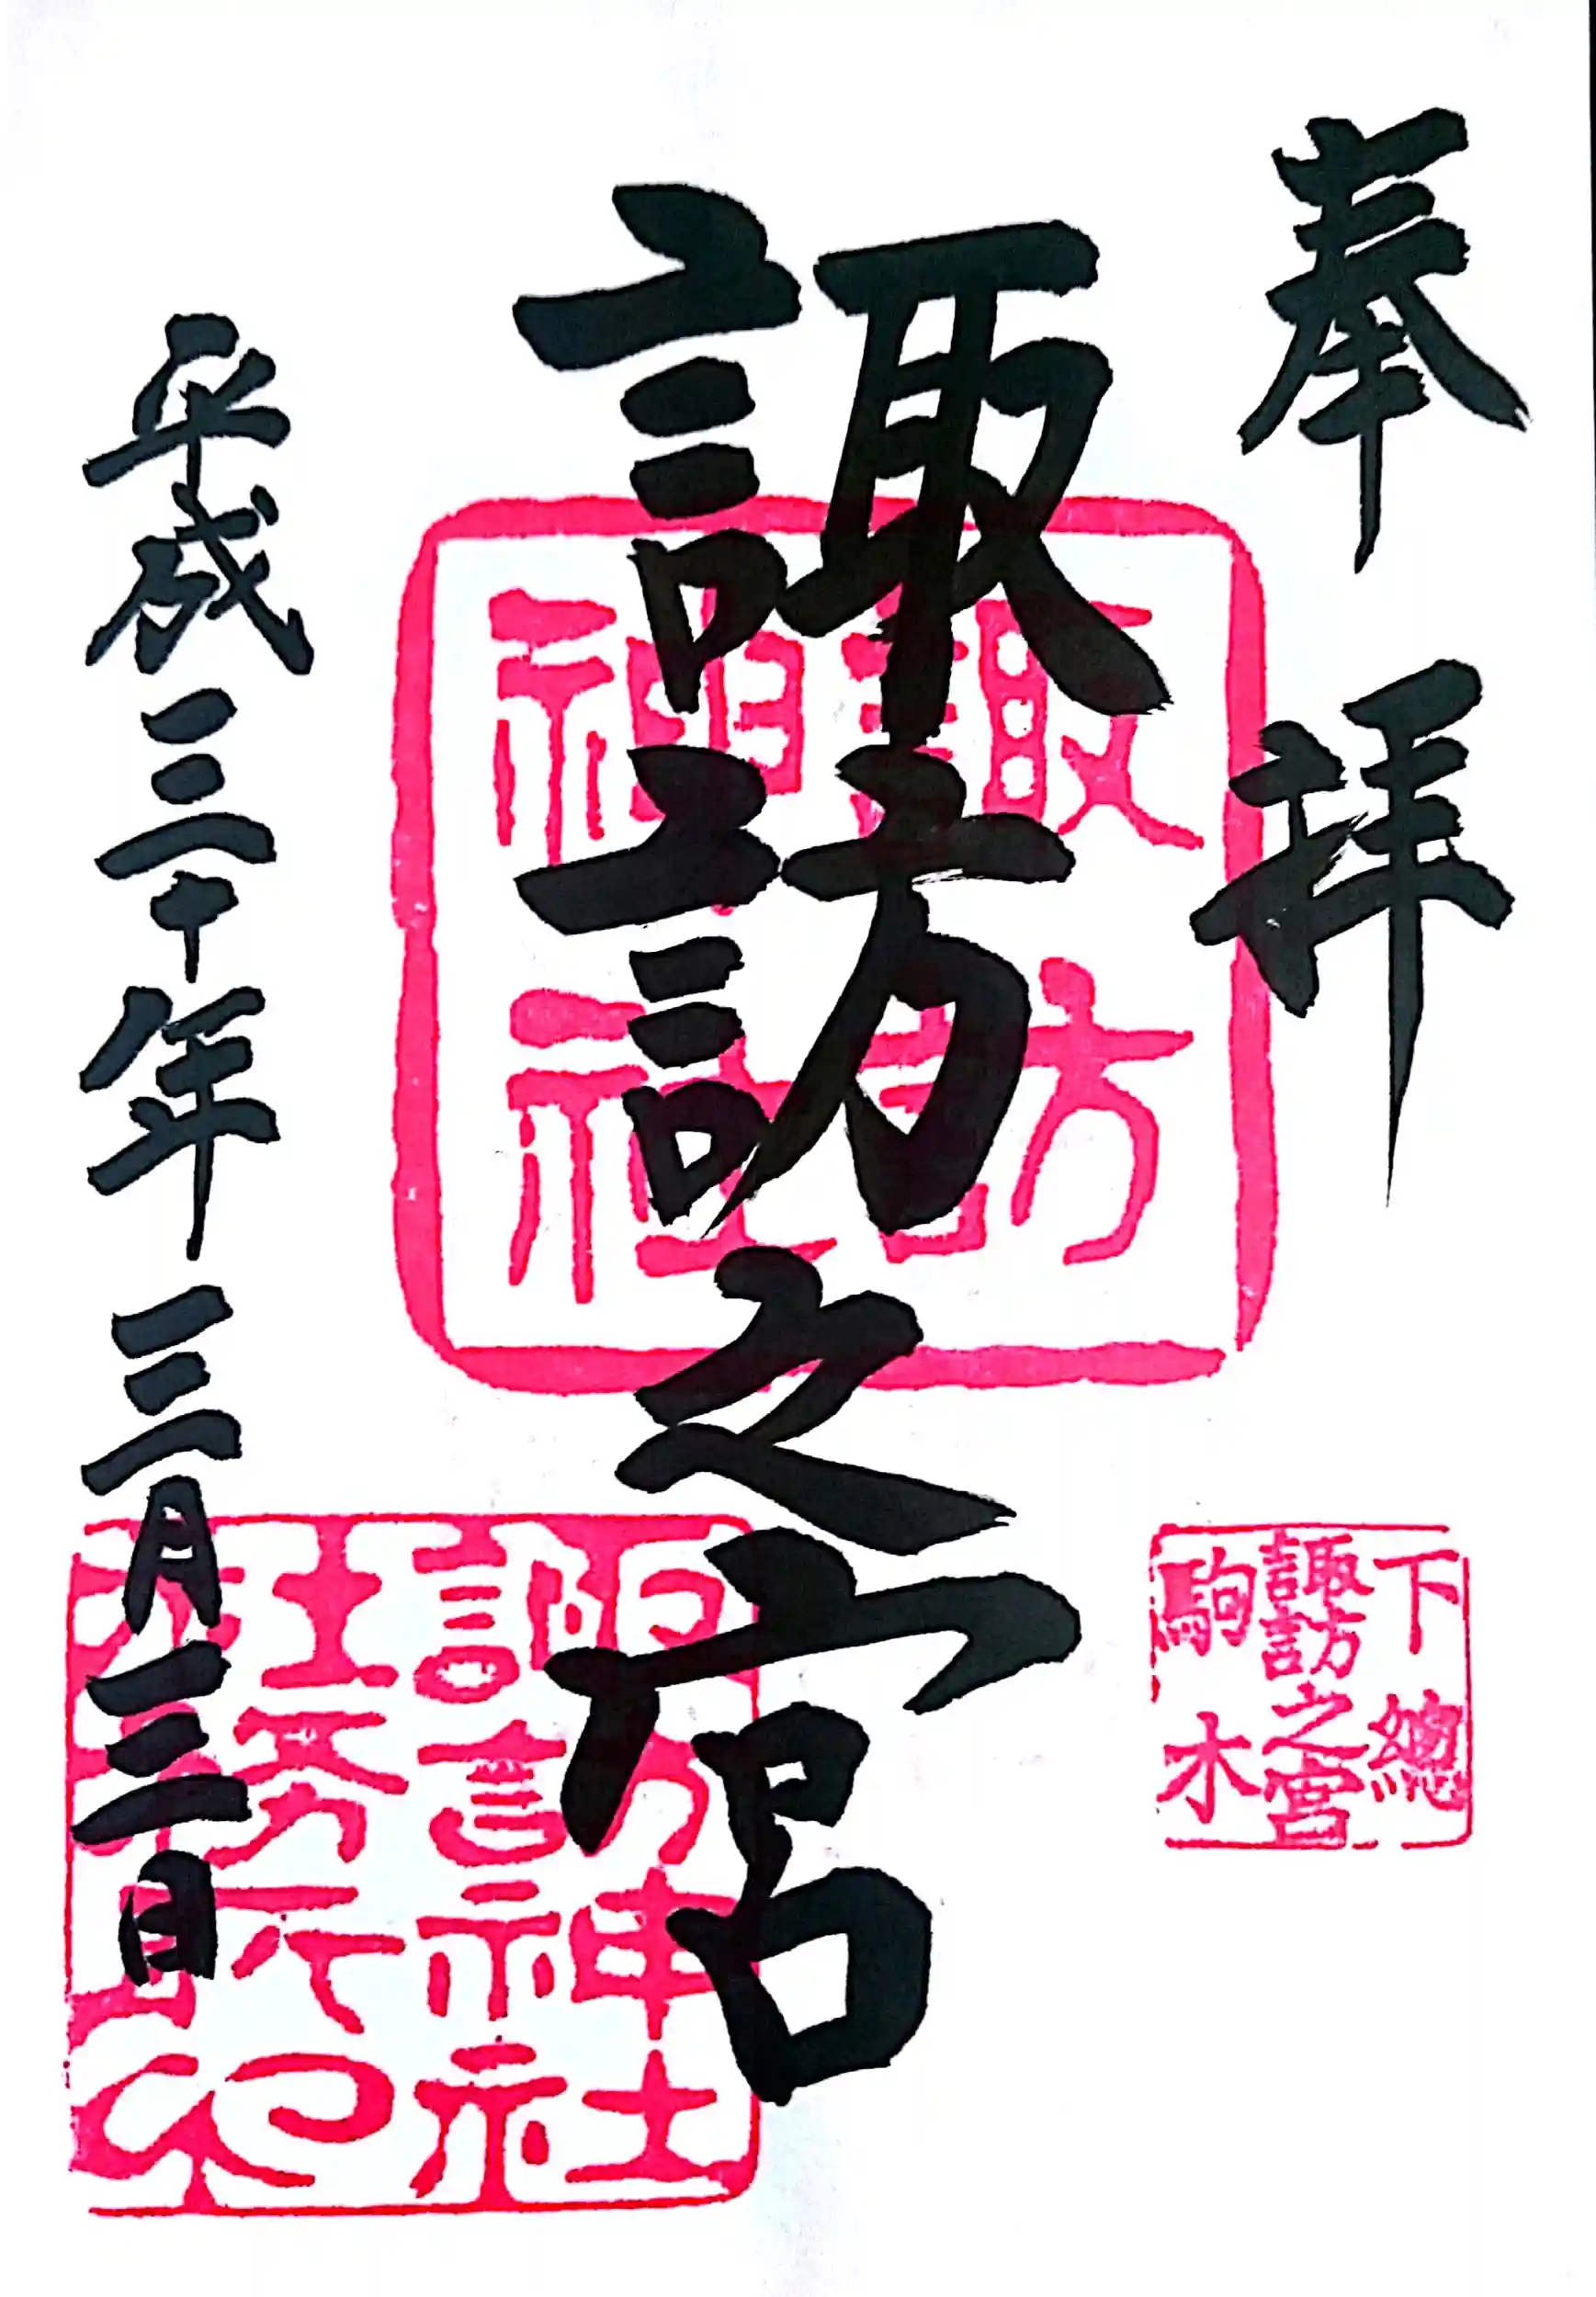 奉拝
諏訪之宮
平成三十年三月三日
諏訪
神社
下總
諏訪之宮
駒木
諏訪神社